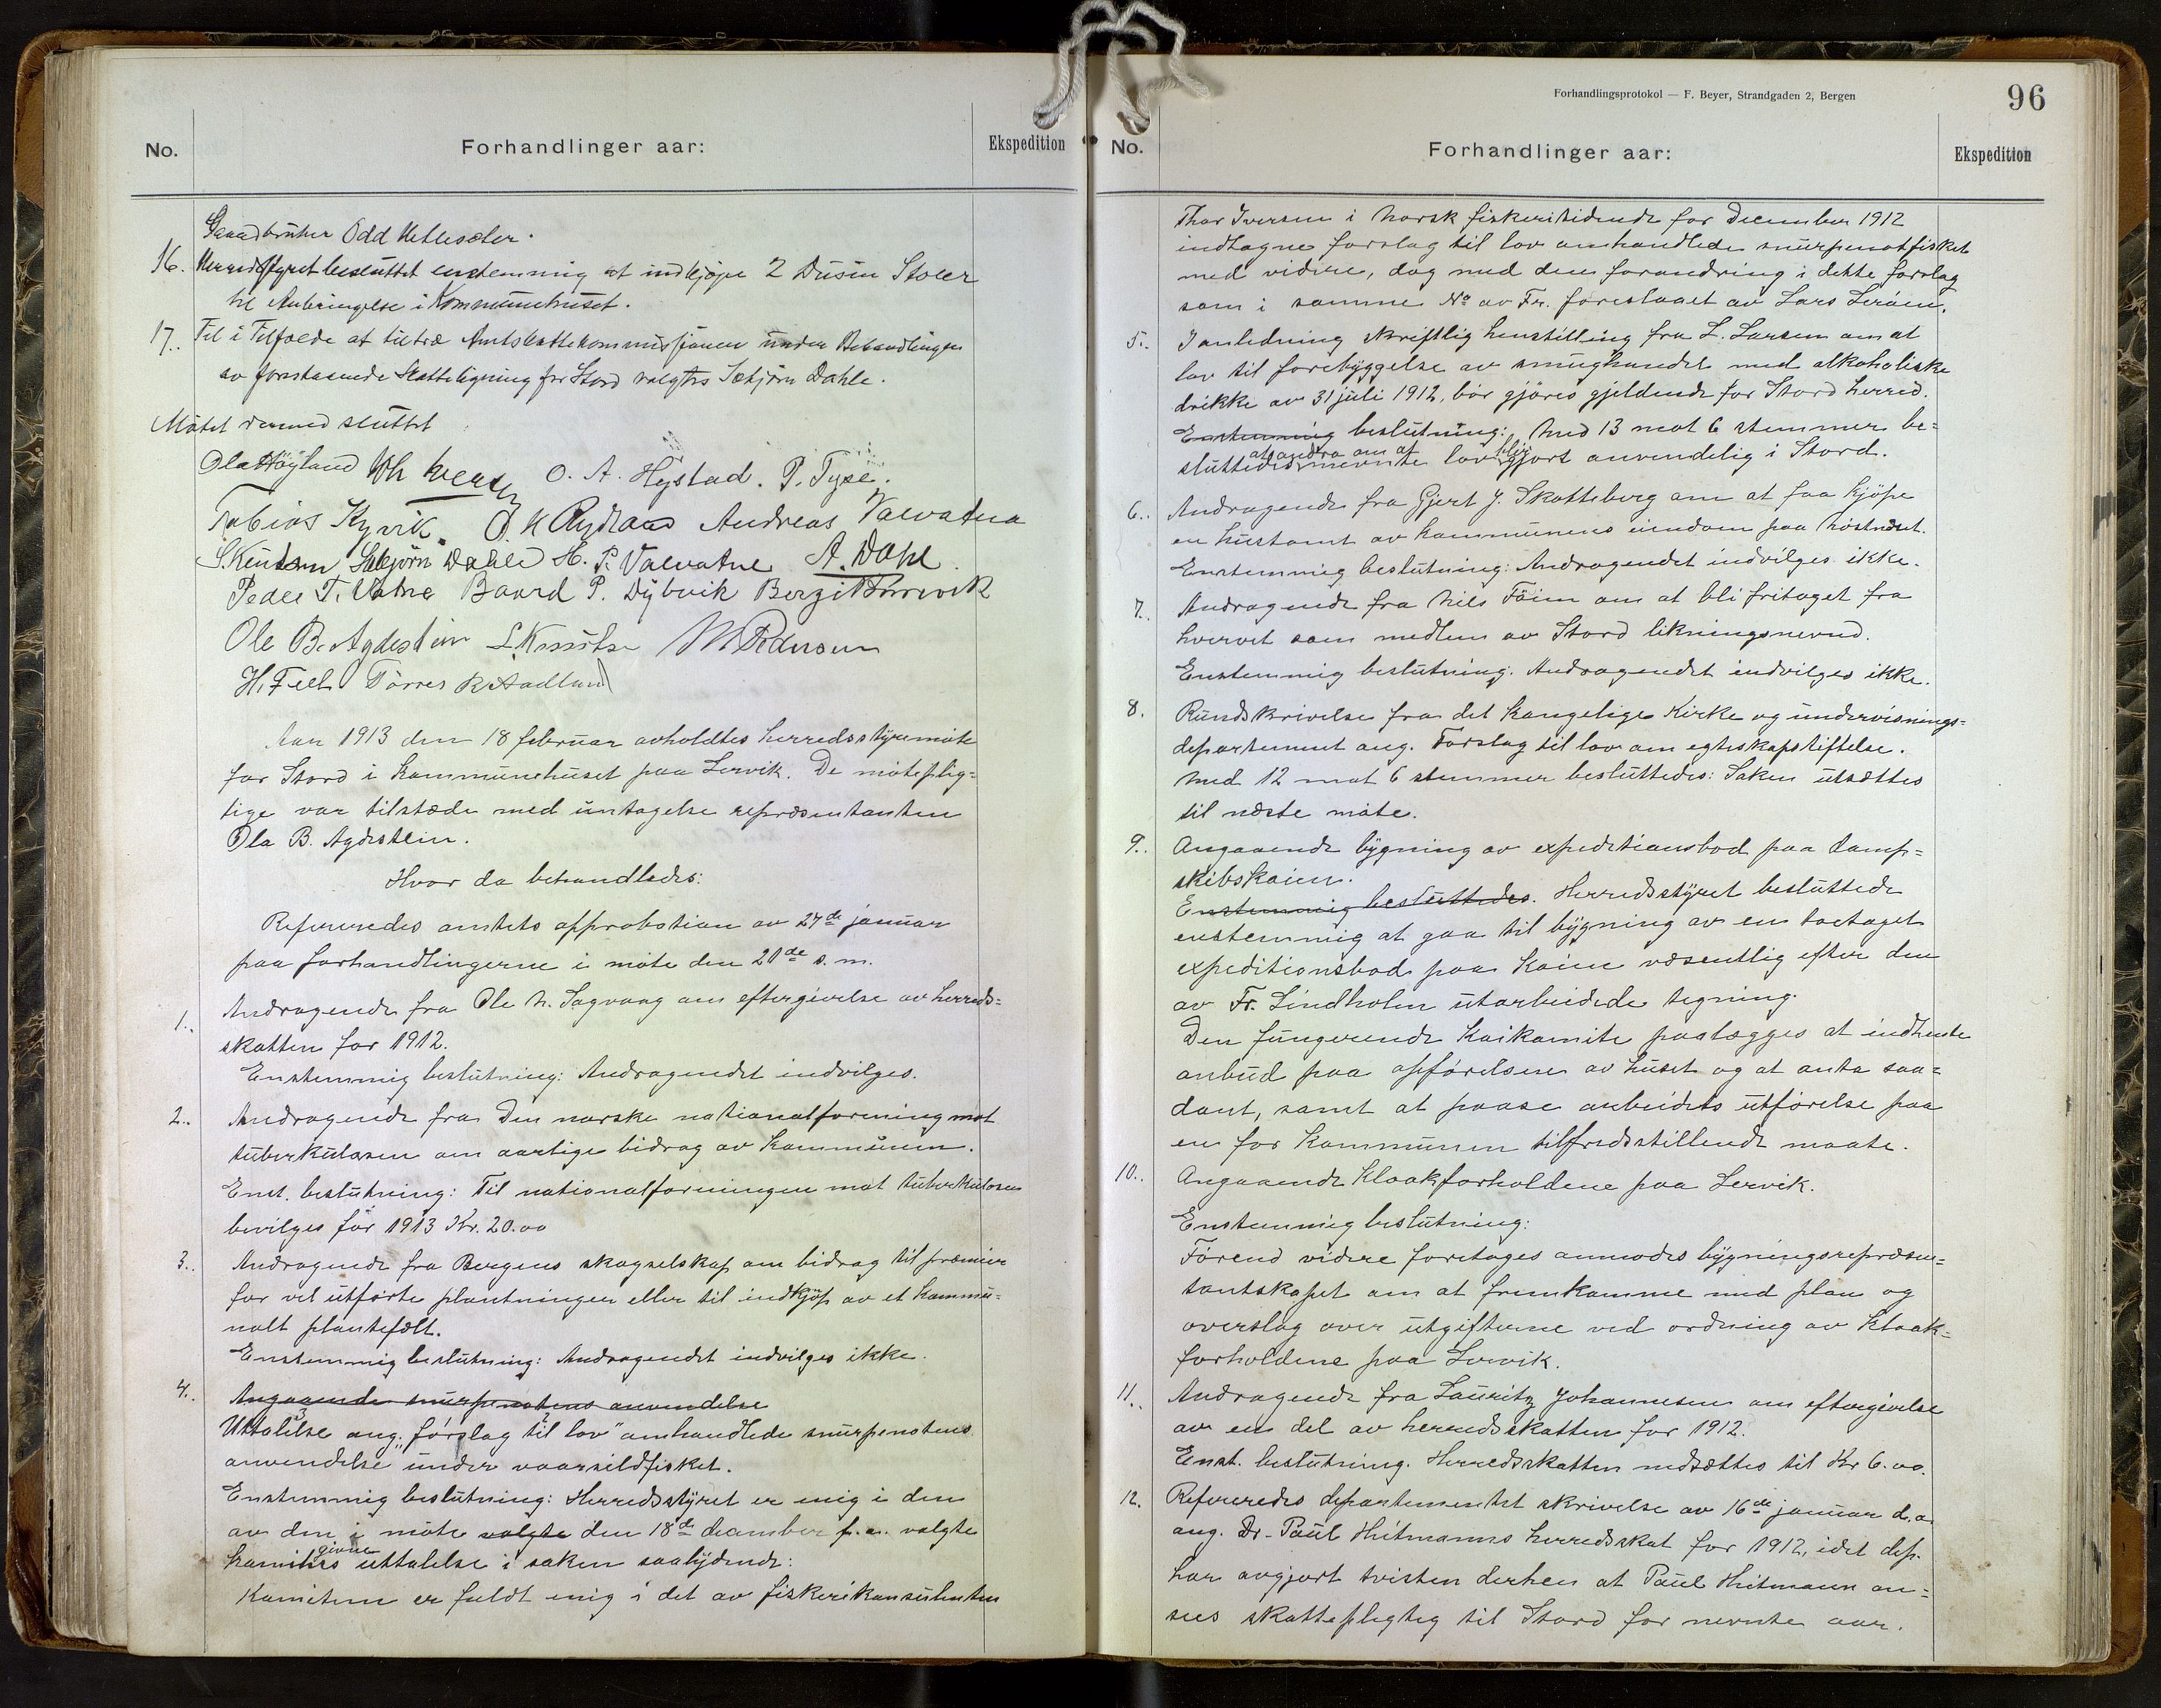 No.
Forhandlinger aar:
Ekspedition
Gaardbruker Odd Kettesæter.
16. Herredsstyret besluttet enstemmig at indkjøpe 2 Dusin Stoler
til Anbringelse i Kommunehuset.
17. Til i Tilfælde at tiltræ Amtsskattekommissjonen under Behandlingen
av forestaaende Skatteligning for Stord valgtes Sæbjørn Dahle.
Møtet dermed sluttet
Ola Høyland O. A. Hystad. P. Tyse.
Tobias Kyvik. O. K. Rydland Andreas Valvatna
S. Knutsen Sæbjørn Dahle H. P. Valvatne A. Dahl.
Peder T. Vatna Baard P. Dybvik
Ole B. Agdestein L. Knutsen M. Pedersen
Tørres R Aadland
Aar 1913 den 18 februar avholdtes herredsstyremøte
for Stord i kommunehuset paa Lervik. De møteplig=
tige var tilstæde med untagelse repræsentanten
Ola B. Agdestein.
Hvor da behandledes:
Refereredes amtets approbation av 27de januar
paa forhandlingerne i møte den 21de s.m.
1. Andragende fra Ole N. Sagvaag om eftergivelse av herreds=
skatten for 1912.
Enstemmig beslutning: Andragendet indvilges.
2. Andragende fra Den norske nationalforening mot
tuberkulosen om aarlige bidrag av kommunen.
Enst. beslutning: Til nationalforeningen mot tuberkulosen
bevilges for 1913 Kr. 20.00
3. Andragende fra Bergens skogselskap om bidrag til præmier
for vel utførte plantninger eller til indkjøp av et kommu=
nalt plantefelt.
Enstemmig beslutning: Andragendet indvilges ikke.
4. Angaaende snurpenotens anvendelse
Uttalelse ang. "forslag til lov" omhandlede snurpenotens
anvendelse under vaarsildfisket.
Enstemmig beslutning: Herredsstyret er enig i den
av den i møte valgte den 18de december f.a. valgte
komites givne uttalelse i saken saalydende:
Komiteen er fuldt enig i det av fiskerikonsulenten
Forhandlingsprotokol — F. Beyer, Strandgaden 2, Bergen
96
No.
Forhandlinger aar:
Ekspedition
Thor Iversen i Norsk fiskeritidende for december 1912
indtagne forslag til lov omhandlede snurpenotfisket
med videre, dog med den forandring i dette forslag
som i samme No av Fr. foreslaaet av Lars Lerøen.
5. I anledning skriftlig henstilling fra L. Larsen om at
lov til forebyggelse av smughandel med alkoholiske
drikke av 31 juli 1912, bør gjøres gjeldende for Stord herred.
Enstemmig beslutning: Med 13 mot 6 stemmer be=
sluttedes at andra om at nevnte lov blir gjort anvendelig i Stord.
6. Andragende fra Gjert J. Skotteberg om at faa kjøpe
en hustomt av kommunens eiendom paa
Enstemmig beslutning: Andragendet indvilges ikke.
7. Andragende fra Nils Føien om at bli fritaget fra
hvervet som medlem av Stord likningsnevnd.
Enstemmig beslutning: Andragendet indvilges ikke.
8. Rundskrivelse fra det kongelige Kirke og undervisnings=
departement ang. Forslag til lov om egteskapstiftelse.
Med 12 mot 6 stemmer besluttedes: Saken utsættes
til næste møte.
9. Angaaende bygning av expeditionsbod paa damp=
skibskaien.
Enstemmig besluttedes. Herredsstyret besluttede
enstemmig at gaa til bygning av en toetaget
expeditionsbod paa kaien væsentlig efter den
av Fr. Lindholm utarbeidede tegning.
Den fungerende kaikomite paalægges at indhente
anbud paa opførelsen av huset og at anta saa=
dant, samt at paase arbeidets utførelse paa
en for kommunen tilfredsstillende maate.
10. Angaaende Kloakforholdene paa Lervik.
Enstemmig beslutning:
Førend videre foretages anmodes bygningsrepræsen=
tantskapet om at fremkomme med plan og
overslag over utgifterne ved ordning av kloak=
forholdene paa Lervik.
11. Andragende fra Lauritz Johannesen om eftergivelse
av en del av herredsskatten for 1912.
Enst. beslutning. Herredsskatten nedsættes til Kr 6.00.
12. Refereredes departementet skrivelse av 16de januar d.a.
ang. Dr. Paul Heitmanns herredsskat for 1912, idet dep.
har avgjort tvisten derhen at Paul Heitmann an=
sees skattepligtig til Stord for nevnte aar.